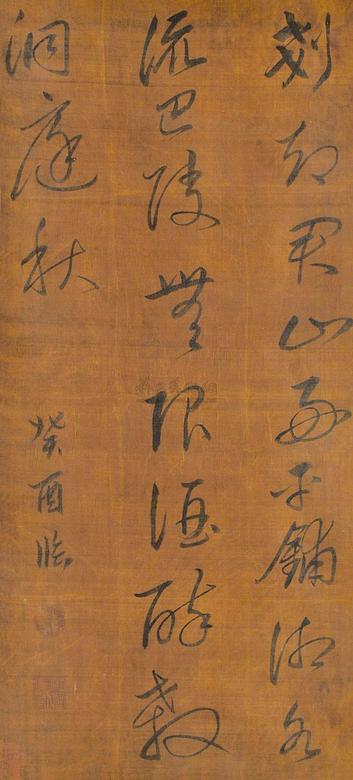 剗却君山好平鋪湘水
流巴陵無限酒醉殺
洞庭秋
癸酉臨